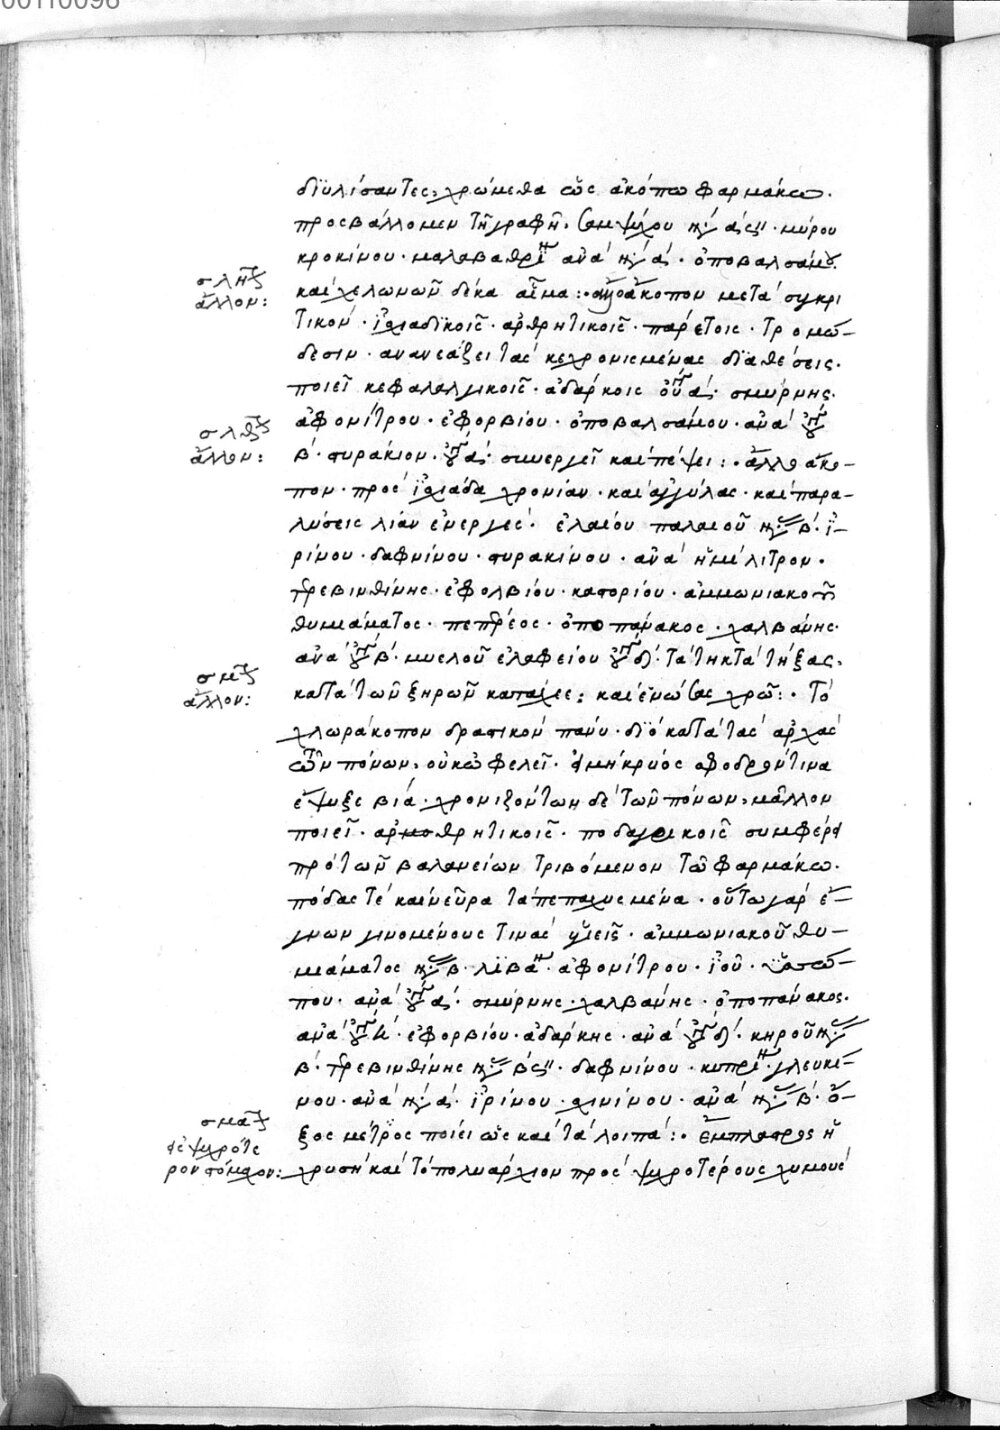 00110096
διϋλίσαντες, χρώμεθα ὡς ἀκόπω φαρμάκω.
προσβάλλομεν τῆ γραφῆ. σαμψύχου μύρου
κροκίνου. μαλαβαθρί ἀνὰ ὀποβαλσάμου.
καὶ χελωνῶν δέκα αἷμα :. ἄκοπον μετασυγκρι
τικὸν. ἰσχιαδικοῖς. ἀρθρητικοῖς. παρέτοις. τρομώ-
δεσιν. ἀνανεάζει τὰς κεχρονισμένας διαθέσεις.
ποιεῖ κεφαλαλγικοῖς. ἀδάρκοις σμύρνης.
ἀφονίτρου. ἐφορβίου. ὀποβαλσάμου. ἀνὰ
β. στυράκιον. συνεργεῖ καὶ πέψει :. ἄλλο ἄκο-
πον. πρὸς ἰσχιάδα χρονίαν. καὶ ἀγγύλας. καὶ παρα-
λύσεις λίαν ἐνεργὲς. ἐλαίου παλαιοῦ β. ἰ-
ρίνου. δαφνίνου. στυρακίνου. ἀνὰ ἡμίλιτρον.
τρεβινθίνης. ἐφολβίου. καστορίου. ἀμμωνιακοῦ
θυμιάματος. πεπέρεος. ὀποπάνακος. χαλβάνης.
ἀνὰ β. μυελοῦ ἐλαφείου δ. τὰ τηκτὰ τήξας.
κατὰ τῶν ξηρῶν καταχέε: καὶ ἑνώσας χρῶ :. Τὸ
χλωράκοπον δραστικὸν πάνυ. διὸ κατὰ τὰς ἀρχὰς
τῶν πόνων, οὐκ ὠφελεῖ. εἰ μὴ κρύος σφοδρὸν τινα
ἔψυξε βία. χρονιζόντων δὲ τῶν πόνων, μᾶλλον
ποιεῖ. ἀρθρητικοῖς. ποδαγρικοῖς συμφέρει
πρὸ τῶν βαλανείων τριβόμενον τῶ φαρμάκω.
πόδας τὲ καὶ νεῦρα τὰ πεπαχυσμένα. οὕτω γὰρ ἔ-
γνων γινομένους τινὰς ὑγιεῖς. ἀμμωνιακοῦ θυ-
μιάματος β. λιβά. ἀφονίτρου. ἰοῦ. ὑσσώ-
που. ἀνὰ σμύρνης. χαλβάνης. ὀποπάνακος.
ἀνὰ ἐφορβίου. ἀδάρκης. ἀνὰ δ. κηροῦ
β. τρεβινθίνης δαφνίνου. κυπρί. γλευκί-
νου. ἀνὰ ἰρίνου. σχινίνου. ἀνὰ β. ὄ-
ξος μέτρος ποίει ὡς καὶ τὰ λοιπὰ :. ἔμπλαστρος ἡ
χρυσῆ καὶ τὸ πολυάρχιον πρὸς ψυχροτέρους χυμοὺς
ἄλλον:
ἄλλον:
ἄλλον:
ψυχρότε
ρον στόμαχον: